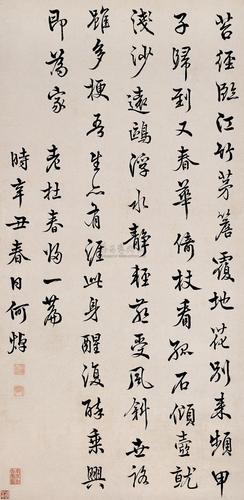 苔徑臨江竹茅簷覆地花別来頻甲
子歸到又春華倚杖看孤石傾壺就
淺沙遠鷗浮水靜輕燕受風斜世路
雖多梗吾生亦有涯此身醒復醉乘興
即為家
老杜春歸一篇
時辛丑春日何焯